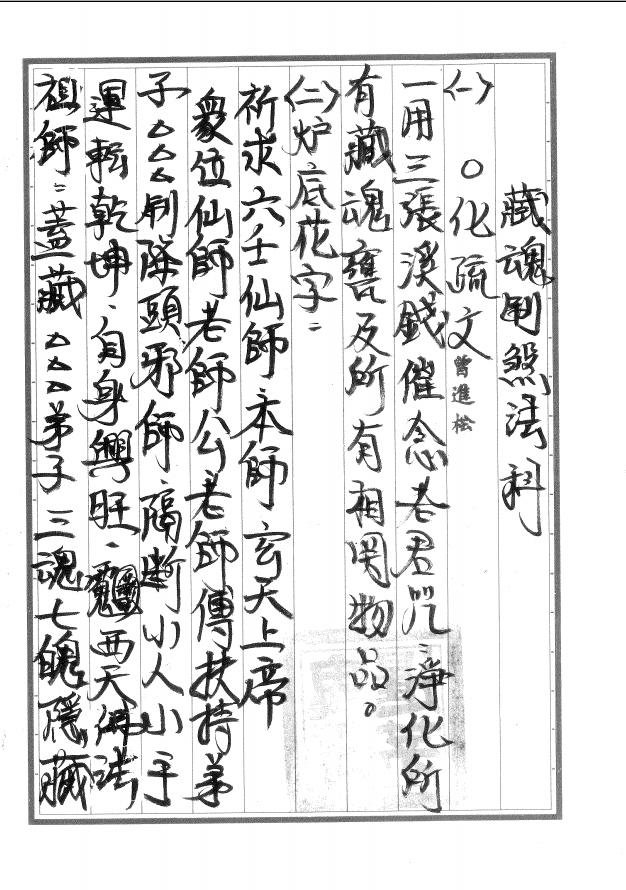 藏魂制煞法科
㈠　○化疏文 曾進松
一用三張溪錢催念老君咒：淨化所
有藏魂甕及所有相関物品。
㈡炉底花字：
祈求六壬仙師、本師、玄天上帝
衆位仙師老師公老師傅扶持弟
子△△△制除頭邪師、隔断小人小手
運転乾坤、自身興旺、西天佛法
祖師：蓋藏△△△弟子三魂七魄隱藏